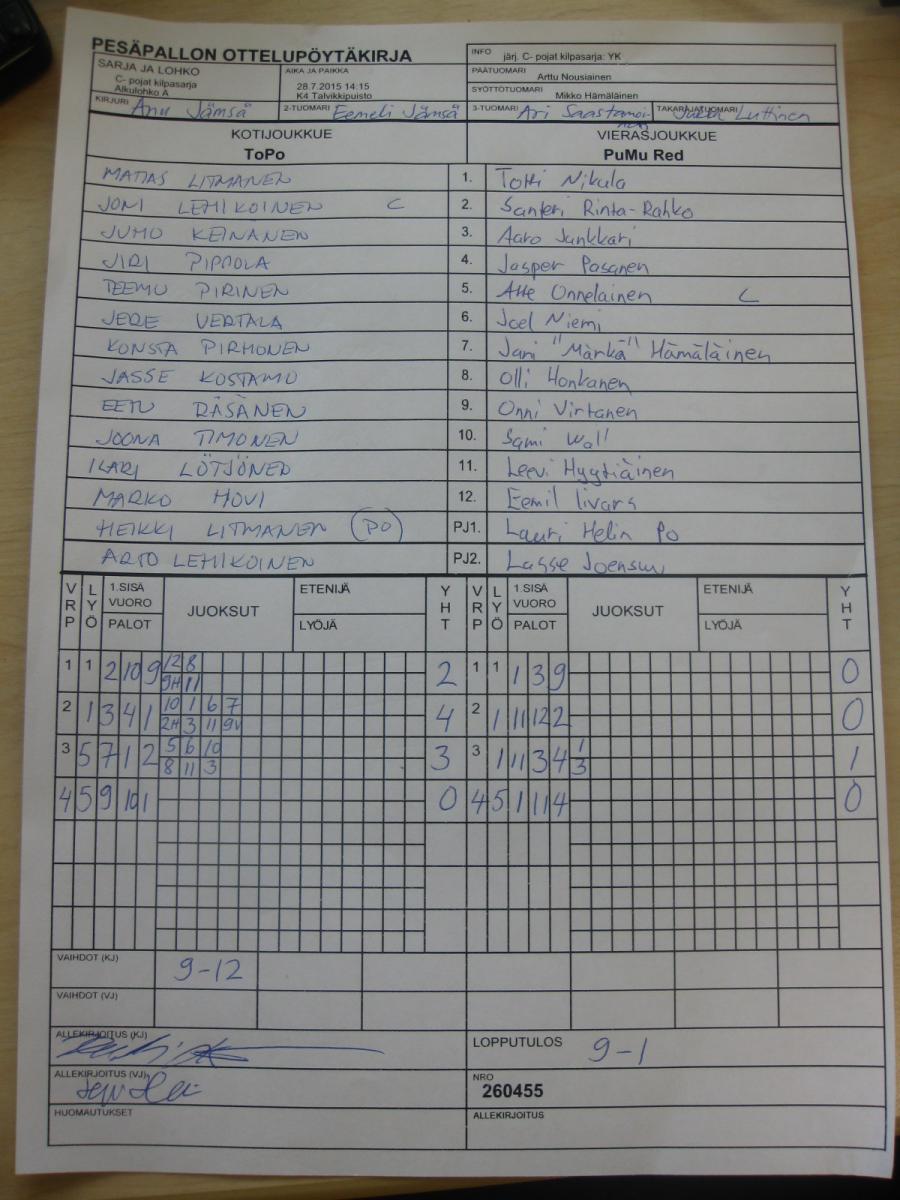 PESÄPALLON OTTELUPÖYTÄKIRJA
INFO järj. C- pojat kilpasarja: YK
SARJA JA LOHKO
C- pojat kilpasarja
Alkulohko A
AIKA JA PAIKKA
28.7.2015 14:15
K4 Talvikkipuisto
PÄÄTUOMARI Arttu Nousiainen
SYÖTTÖTUOMARI Mikko Hämäläinen
KIRJURI Anu Jämsä 2-TUOMARI Eemeli Jämsä 3-TUOMARI Ari Saastamoinen TAKARAJATUOMARI Luttinen
KOTIJOUKKUE VIERASJOUKKUE
ToPo PuMu Red
MATIAS LITMANEN 1. Totti Nikula
JONI LEHIKOINEN C 2. Santeri Rinta-Rahko
JUHO KEINANEN 3. Aaro Junkkari
JIRI PIPPOLA 4. Jasper Pasanen
TEEMU PIRINEN 5. Atte Onnelainen C
JERE VERTALA 6. Joel Niemi
KONSTA PIRHONEN 7. Jani "Märkä" Hämäläinen
JASSE KOSTAMO 8. Olli Honkanen
EETU RÄSÄNEN 9. Onni Virtanen
JOONA TIMONEN 10. Sami Wall
ILARI LÖTJÖNEN 11. Leevi Hyytiäinen
MARKO HOVI 12. Eemil Iivars
HEIKKI LITMANEN (PO) PJ1. Lauri Helin Po
ARTO LEHIKOINEN PJ2. Lasse Joensuu
VRP LYÖ 1.SISÄ VUORO PALOT JUOKSUT ETENIJÄ LYÖJÄ YHT VRP LYÖ 1.SISÄ VUORO PALOT JUOKSUT ETENIJÄ LYÖJÄ YHT
1 1 2 10 9 12 8 2 1 1 1 3 9 0
9H 11
2 1 3 4 1 10 1 6 7 4 2 1 11 12 2 0
2H 3 11 9V
3 5 7 1 2 5 6 10 3 3 1 11 3 4 1 1
8 11 3 3
4 5 9 10 1 0 4 5 1 11 4 0
VAIHDOT (KJ) 9-12
VAIHDOT (VJ)
ALLEKIRJOITUS (KJ) LOPPUTULOS 9-1
ALLEKIRJOITUS (VJ) NRO
260455
HUOMAUTUKSET ALLEKIRJOITUS